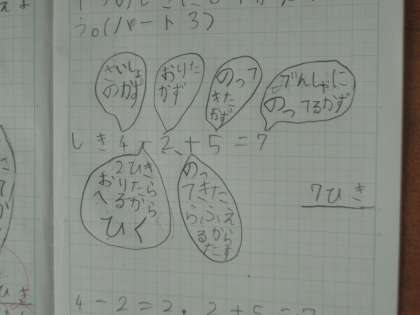 う。(パート3)
さいしょ
のかず
おりた
かず
のって
きた
かず
でんしゃに
のってるかず
しき 4-2+5=7
2ひき
おりたら
へるから
ひく
のっ
てきた
らふえ
るから
たす
7ひき
4-2=2, 2+5=7